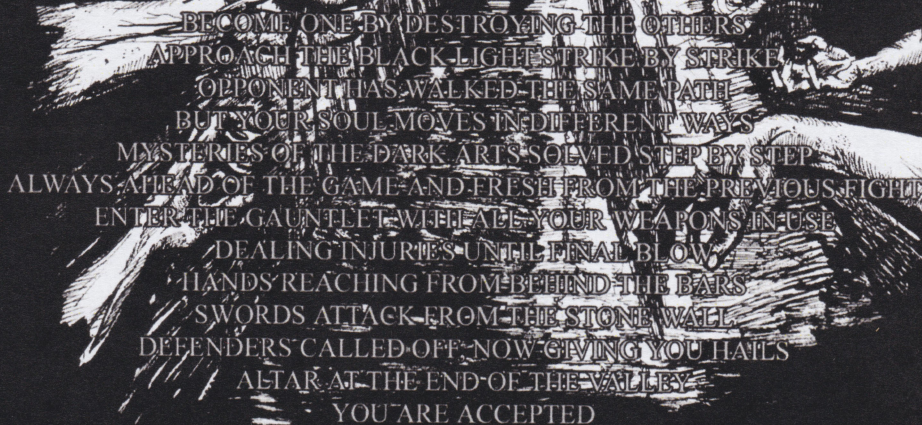 BECOME ONE BY DESTROYING THE OTHERS
APPROACH THE BLACK LIGHT STRIKE BY STRIKE
OPPONENT HAS WALKED THE SAME PATH
BUT YOUR SOUL MOVES IN DIFFERENT WAYS
MYSTERIES OF THE DARK ARTS SOLVED STEP BY STEP
ALWAYS AHEAD OF THE GAME AND FRESH FROM THE PREVIOUS FIGHT
ENTER THE GAUNTLET WITH ALL YOUR WEAPONS IN USE
DEALING INJURIES UNTIL FINAL BLOW
HANDS REACHING FROM BEHIND THE BARS
SWORDS ATTACK FROM THE STONE WALL
DEFENDERS CALLED OFF, NOW GIVING YOU HAILS
ALTAR AT THE END OF THE VALLEY
YOU ARE ACCEPTED